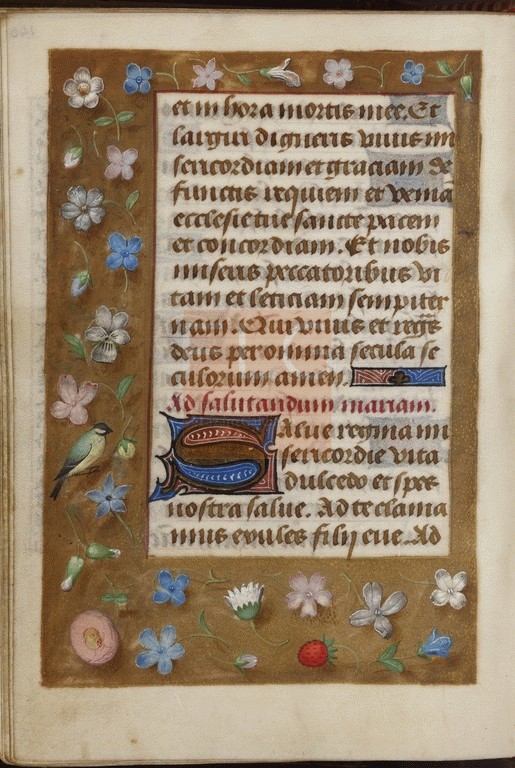 et in hora mortis mee. Et
largiri digneris viuis mi
sericordiam et graciam de
functis requiem et veniā
ecclesie tue sancte pacem
et concordiam. Et nobis
miseris peccatoribus vi
tam et leticiam sempiter
nam. Qui viuis et regs
deus per omnia secula se
culorum amen.
Ad salutandum mariam.
Salue regina mi
sericordie vita
dulcedo et spes
nostra salue. Ad te clama
mus exules filij eue. Ad